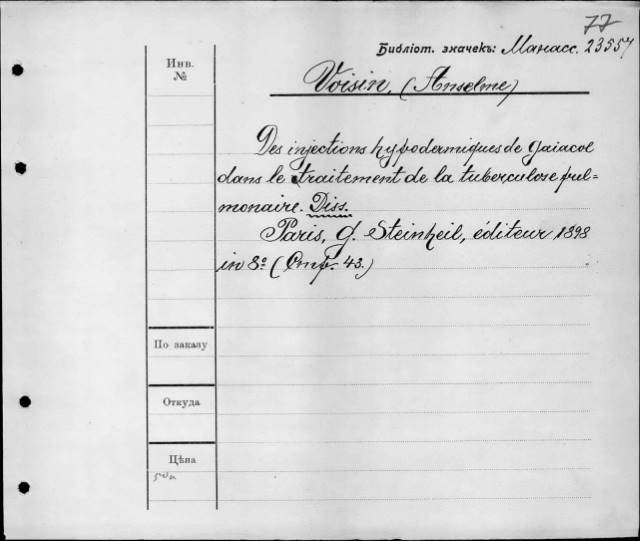 77
Библіот. значекъ: Манасс. 23557
Инв.
№
Voisin, (Anselme)
Des injections hypodermiques de gaiacol
dans le traitement de la tuberculose pul=
monaire. Diss.
Paris, G. Steinheil, éditeur 1898
in 8º (Стр. 43.)
По заказу
Откуда
Цѣна